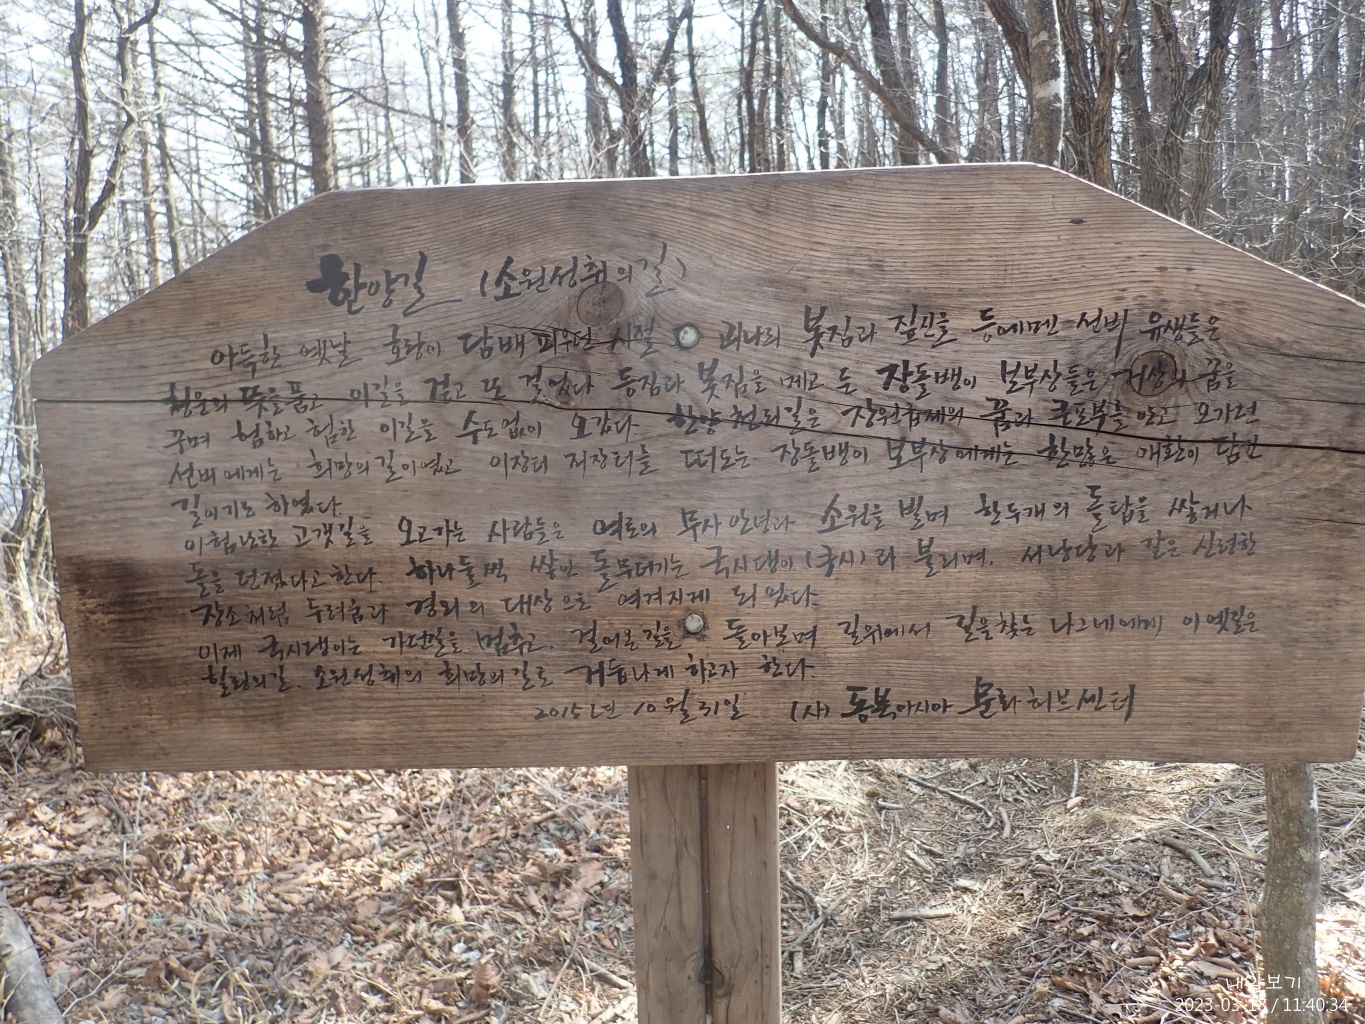 한양길 (소원성취의길)
아득한 옛날 호랑이 담배 피우던 시절 괴나리 봇짐과 짚신을 등에메인 선비 유생들은
청운의 뜻을품고 이길을 걷고 또 걸었다 등짐과 봇짐을 메고 든 장돌뱅이 보부상들은 거상의 꿈을
꾸며 험하고 험한 이길을 수도없이 오갔다 한양천리길은 장원급제의 꿈과 큰포부를 안고 오가던
선비에게는 희망의길이였고 이장터 저장터를 떠도는 장돌뱅이 보부상에게는 한많은 애환이 담긴
길이기도 하였다
이험난한 고갯길을 오고가는 사람들은 여로의 무사안녕과 소원을 빌며 한두개의 돌탑을 쌓거나
돌을 던졌다고한다. 하나둘씩 쌓인 돌무더기는 국시댕이(국시)라 불리며, 서낭당과 같은 신령한
장소처럼 두려움과 경외의 대상으로 여겨지게 되었다.
이제 국시댕이는 가던발을 멈추고, 걸어온길을 돌아보며 길위에서 길을찾는 나그네에게 이옛길은
힐링의길, 소원성취의 희망의길로 거듭나게 하고자 한다.
2015년 10월 31일 (사) 동북아시아 문화허브센터
2023-03-18 / 11:40:34